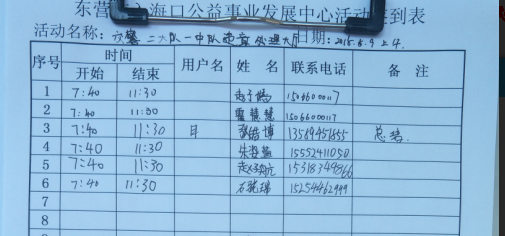 东营 海口公益事业发展中心活动 到表
活动名称: 交警二大队一中队违章处理大厅 日期: 2015.5.9 上午
序号 时间 用户名 姓 名 联系电话 备 注
开始 结束
1 7:40 11:30 1506600017
2 7:40 11:30 慧慧 1506600017
3 7:40 11:30 博 13589451855 总结
4 7:40 11:30 朱 15552411050
5 7:40 11:30 赵 航 15318349866
6 7:40 11:30 石 瑞 15254462999
7
8